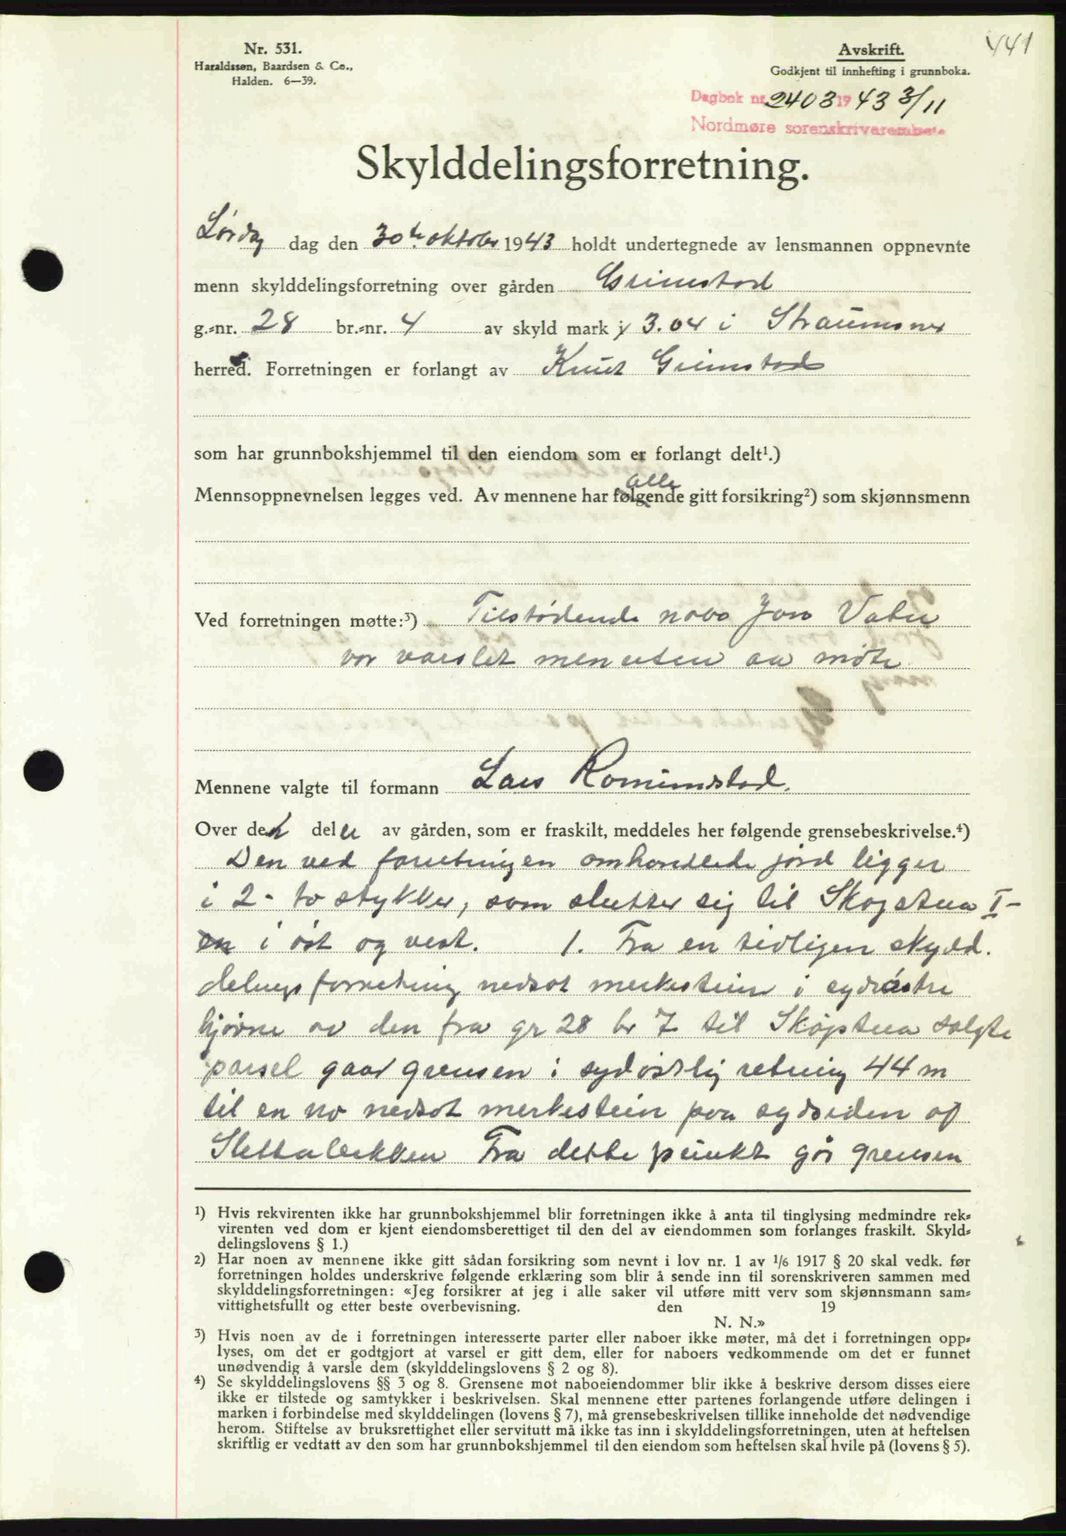 441
Nr. 531.
Haraldssøn, Baardsen & Co.,
Halden. 6—39.
Avskrift.
Godkjent til innhefting i grunnboka.
Dagbok nr. 2403 1943 3/11
Nordmøre sorenskriverembete
Skylddelingsforretning.
Lørdag dag den 30te oktober 1943 holdt undertegnede av lensmannen oppnevnte
menn skylddelingsforretning over gården Grimstad
g.=nr. 28 br.=nr. 4 av skyld mark 3.04 i Straumsnes
herred. Forretningen er forlangt av Knut Grimstad
som har grunnbokshjemmel til den eiendom som er forlangt delt¹.)
alle
Mennsoppnevnelsen legges ved. Av mennene har følgende gitt forsikring²) som skjønnsmenn
Ved forretningen møtte:³) Tilstødende nabo Jon Vaben
var varslet men uten aa møte.
Mennene valgte til formann Lars Romundstad.
Over den del av gården, som er fraskilt, meddeles her følgende grensebeskrivelse.⁴)
Den ved forretningen omhandlede jord ligger
i 2- to stykker, som slutter sig til Skogstua I-
en i øst og vest. 1. Fra en tidligere skyld.
delings forretning nedsat merkestein i sydøstre
hjørne av den fra gr 28 br 7 til Skogstua solgte
parsel gaar grensen i sydøstlig retning 44 m
til en no nedsat merkestein paa sydsiden af
Slettabekken Fra dette punkt går grensen
¹) Hvis rekvirenten ikke har grunnbokshjemmel blir forretningen ikke å anta til tinglysing medmindre rek=
virenten ved dom er kjent eiendomsberettiget til den del av eiendommen som forlanges fraskilt. Skyld=
delingslovens § 1.)
²) Har noen av mennene ikke gitt sådan forsikring som nevnt i lov nr. 1 av 1/6 1917 § 20 skal vedk. før
forretningen holdes underskrive følgende erklæring som blir å sende inn til sorenskriveren sammen med
skylddelingsforretningen: «Jeg forsikrer at jeg i alle saker vil utføre mitt verv som skjønnsmann sam=
vittighetsfullt og etter beste overbevisning. den 19
N. N.»
³) Hvis noen av de i forretningen interesserte parter eller naboer ikke møter, må det i forretningen opp=
lyses, om det er godtgjort at varsel er gitt dem, eller for naboers vedkommende om det er funnet
unødvendig å varsle dem (skylddelingslovens § 2 og 8).
⁴) Se skylddelingslovens §§ 3 og 8. Grensene mot naboeiendommer blir ikke å beskrive dersom disses eiere
ikke er tilstede og samtykker i beskrivelsen. Skal mennene etter partenes forlangende utføre delingen i
marken i forbindelse med skylddelingen (lovens § 7), må grensebeskrivelsen tillike inneholde det nødvendige
herom. Stiftelse av bruksrettighet eller servitutt må ikke tas inn i skylddelingsforretningen, uten at heftelsen
skriftlig er vedtatt av den som har grunnbokshjemmel til den eiendom som heftelsen skal hvile på (lovens § 5).